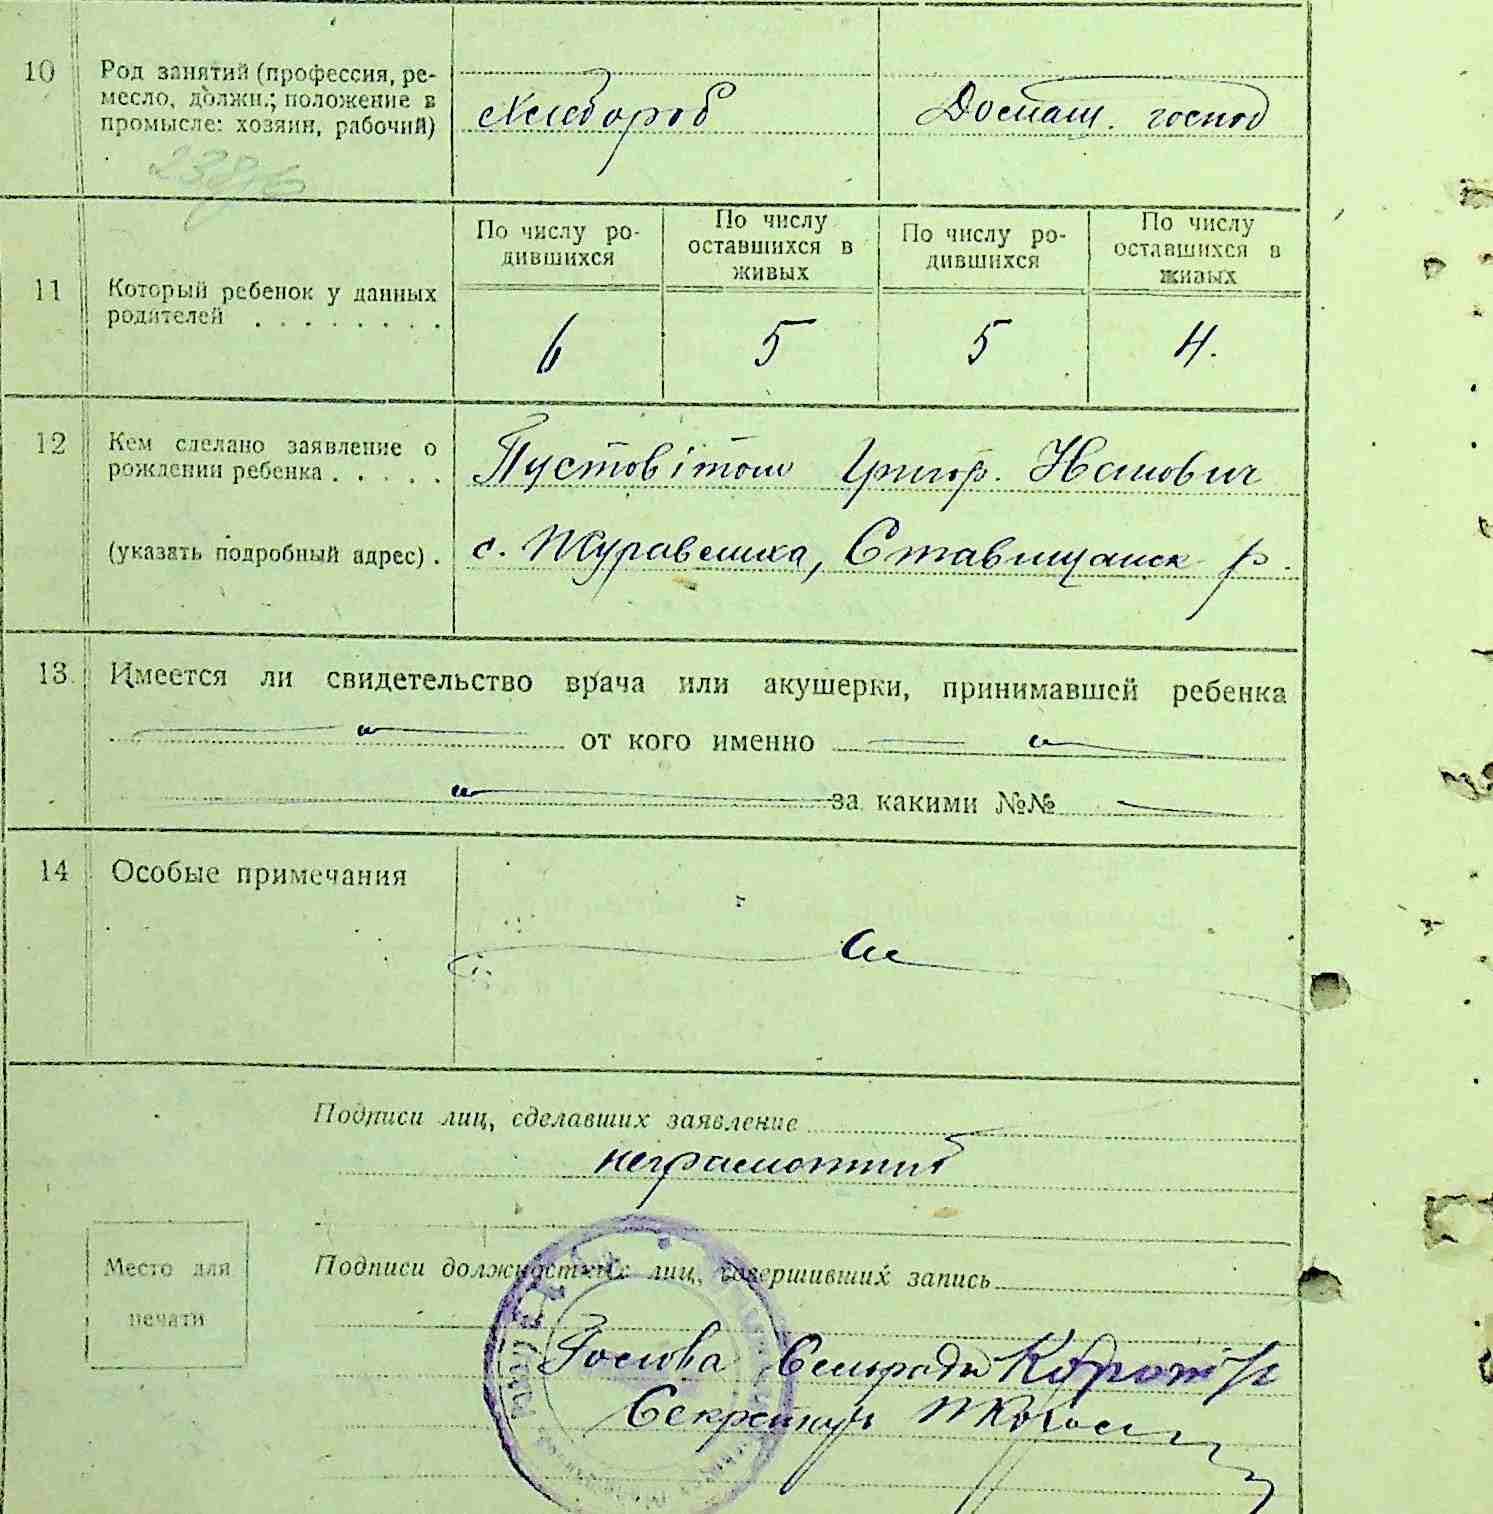 10 Род занятий (профессия, ре-
месло, должн.; положение в
промысле: хозяин, рабочий)
Хлебороб
Домаш. господ
11 Который ребенок у данных
родителей . . . . . . . .
По числу ро-
дившихся
По числу
оставшихся в
живых
По числу ро-
дившихся
По числу
оставшихся в
живых
6 5 5 4.
12 Кем сделано заявление о
рождении ребенка . . . . .
Григор.
(указать подробный адрес) .
с. Журавлиха, Ставищанск р.
13. Имеется ли свидетельство врача или акушерки, принимавшей ребенка
от кого именно
за какими №№
14 Особые примечания
Подписи лиц, сделавших заявление
Место для
печати
Подписи должностных лиц, совершивших запись
Голова Сельради
Секретарь